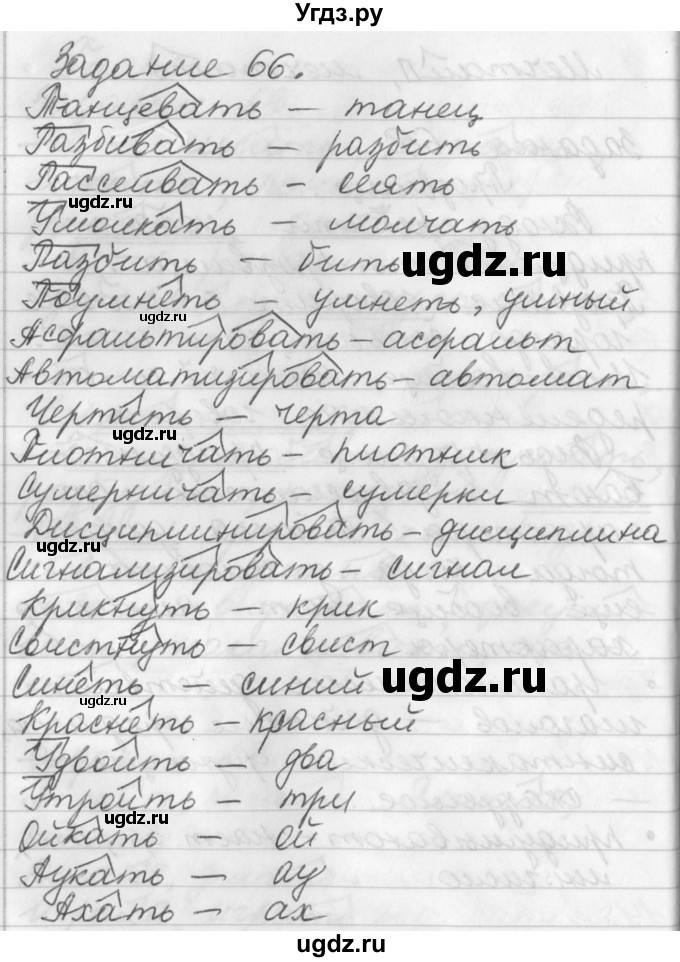 Угдз.ру
Задание 66.
Танцевать – танец
Разбивать – разбить
Рассеивать – сеять
Умолкать – молчать
Разбить – бить
Поумнеть – умнеть, умный
Асфальтировать – асфальт
Автоматизировать – автомат
Чертить – черта
Плотничать – плотник
Сумерничать – сумерки
Дисциплинировать – дисциплина
Сигнализировать – сигнал
Крикнуть – крик
Свистнуть – свист
Синеть – синий
Краснеть – красный
Удвоить – два
Утроить – три
Ойкать – ой
Аукать – ау
Ахать – ах
ugdz.ru
ugdz.ru
ugdz.ru
ugdz.ru
ugdz.ru
ugdz.ru
ugdz.ru
ugdz.ru
ugdz.ru